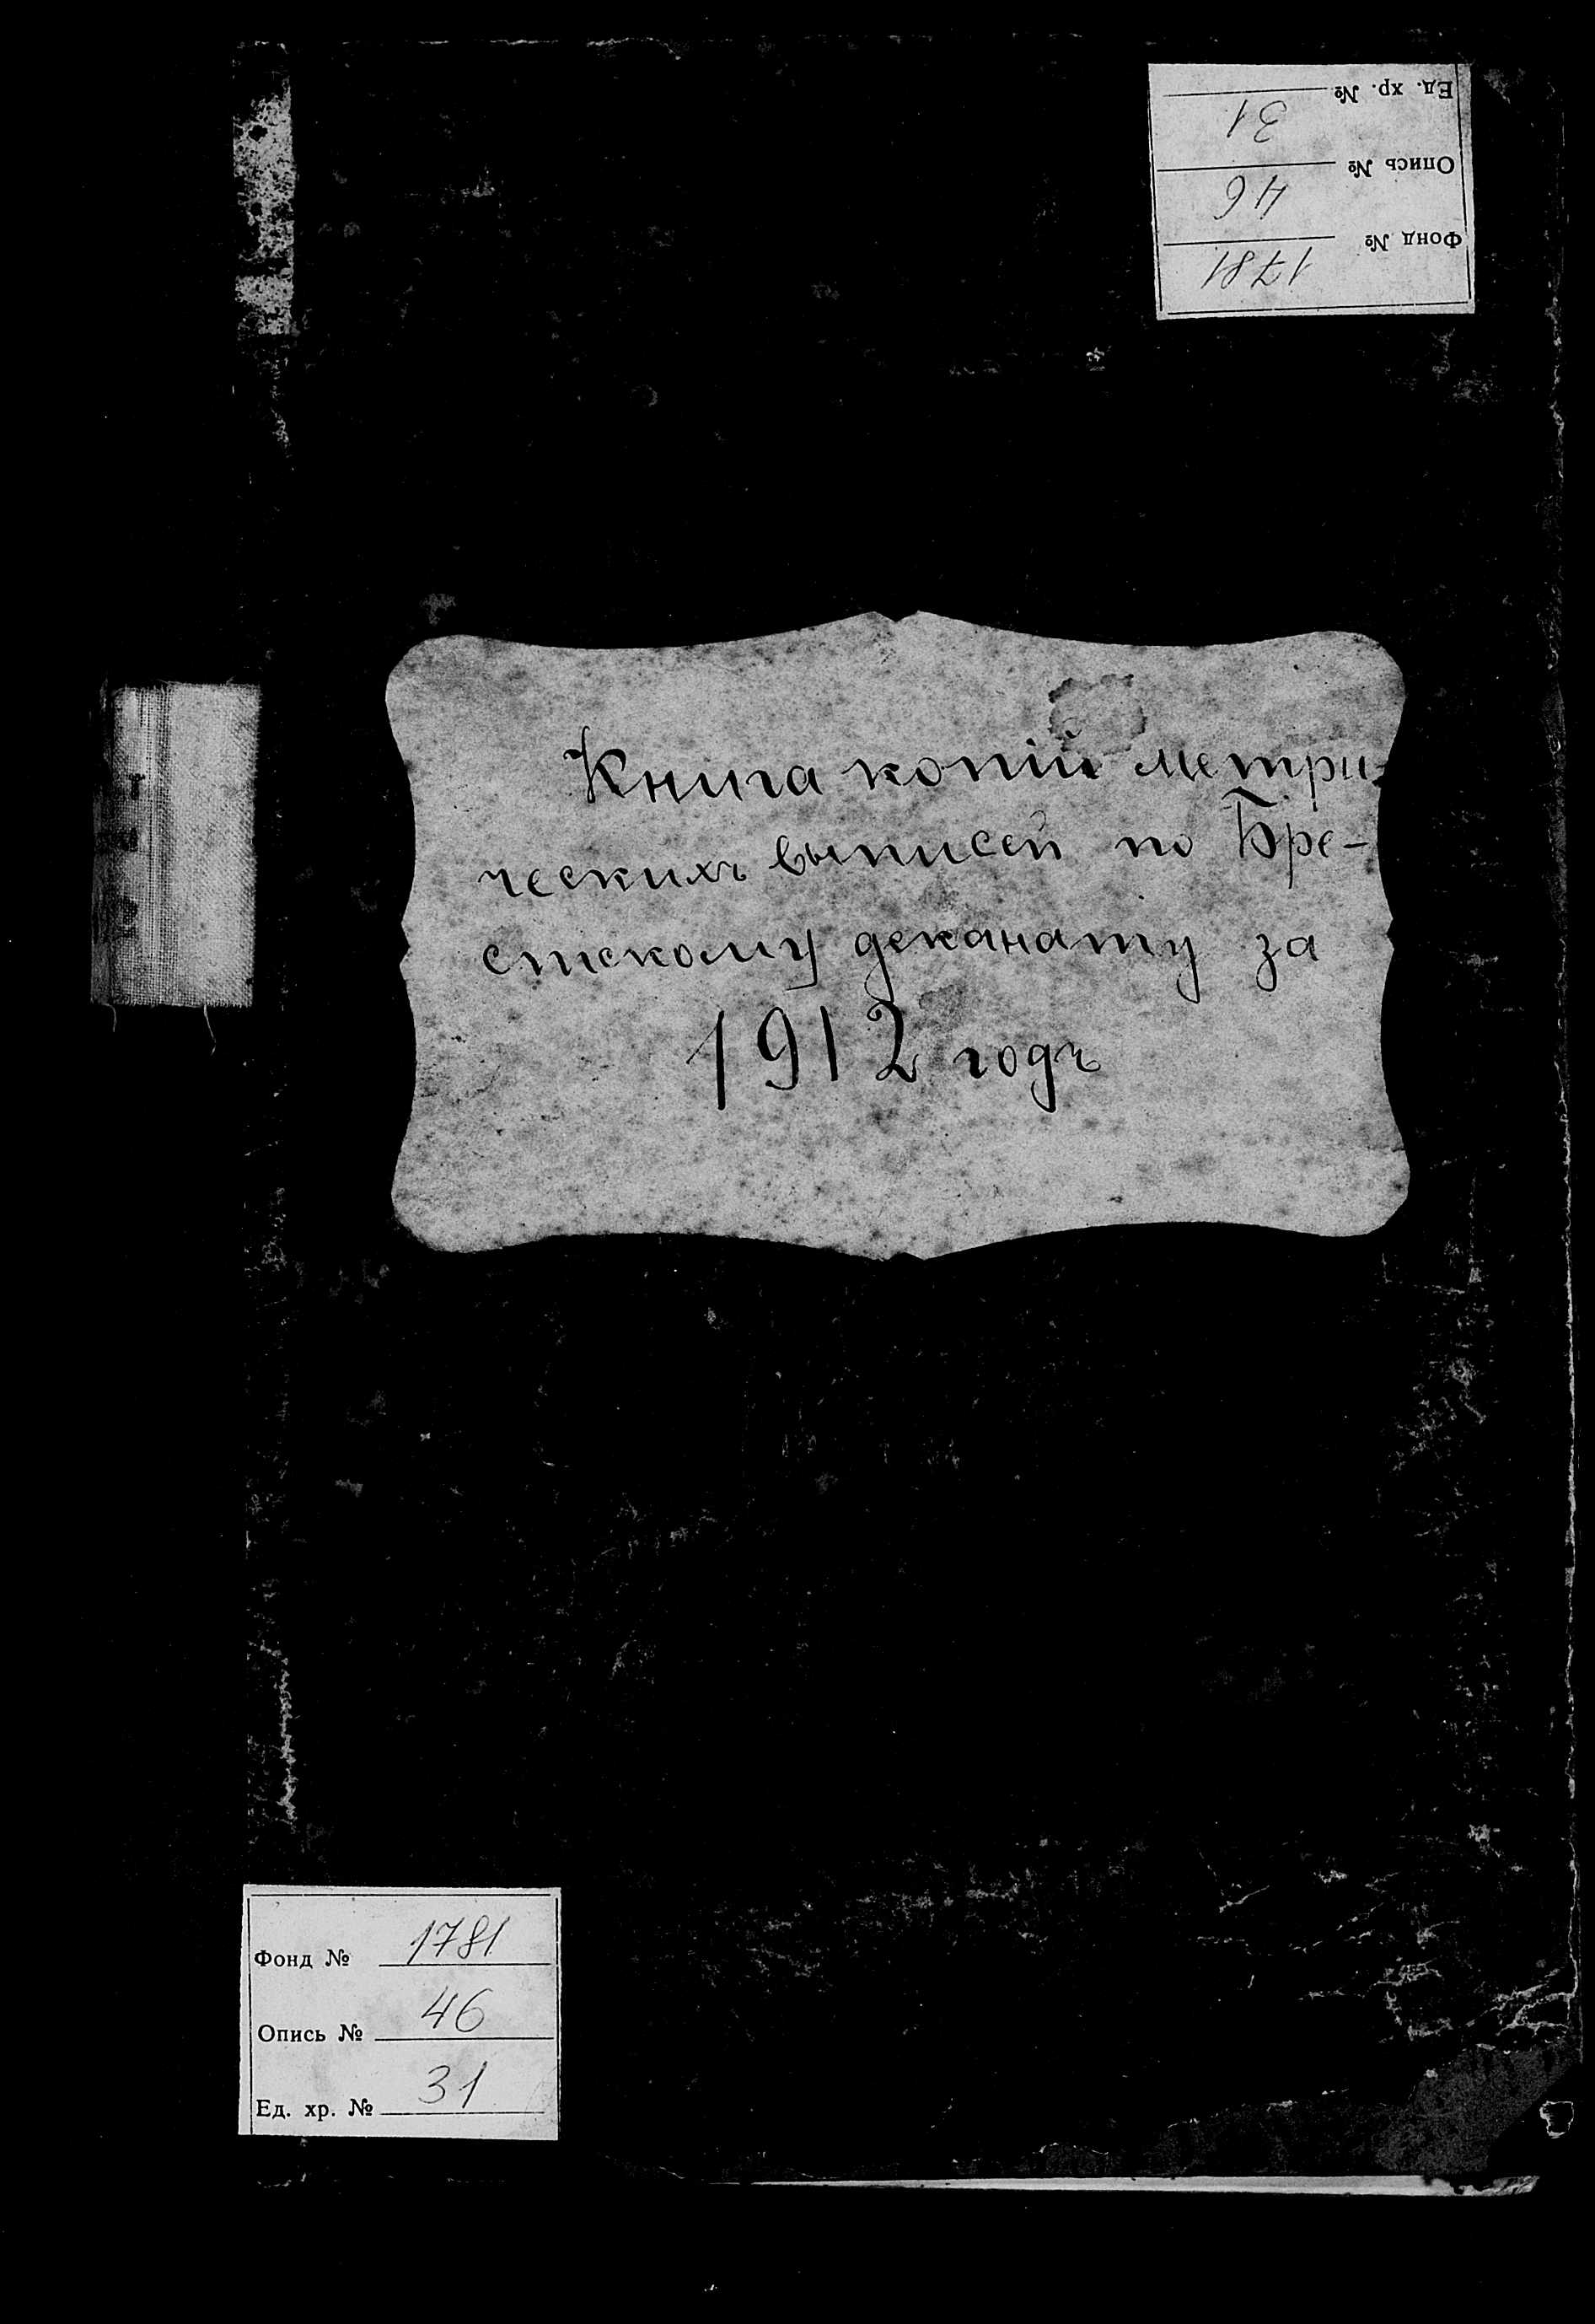 Ед. хр. № 31
Опись № 46
Фонд № 1781
Книга копій метри-
ческихъ выписей по Бре-
стскому деканату за
1912 годъ
Фонд № 1781
Опись № 46
Ед. хр. № 31